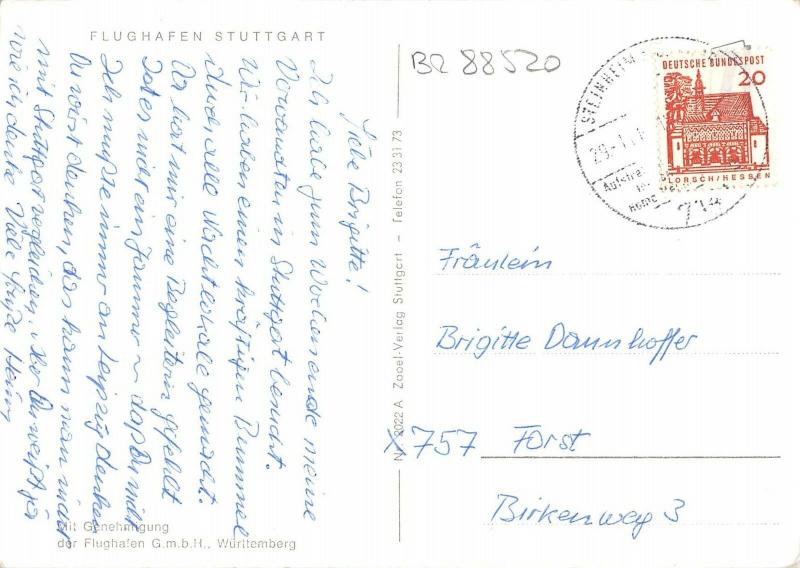 FLUGHAFEN STUTTGART
BR 88520
STEINHEIM
29.-1.
Aufstre
714
DEUTSCHE BUNDESPOST
20
LORSCH/HESSEN
Liebe Brigitte!
Ich habe zum Wochenende meine
Verwandten in Stuttgart besucht.
Wir haben einen kräftigen Bummel
durch alle Nachtlokale gemacht.
Da hat mir eine Begleiterin gefehlt
Jammer daß Du nicht
Ich mußte immer an Leipzig denken
Du wirst denken, das kann man nicht
mit Stuttgart vergleichen. Aber Du weißt ja
wie ich denke Viele Grüße
Fräulein
Brigitte Dannhoffer
X757 Forst
Birkenweg 3
Nr. 2022 A Zobel-Verlag Stuttgart – Telefon 23 31 73
Mit Genehmigung
der Flughafen G.m.b.H., Württemberg